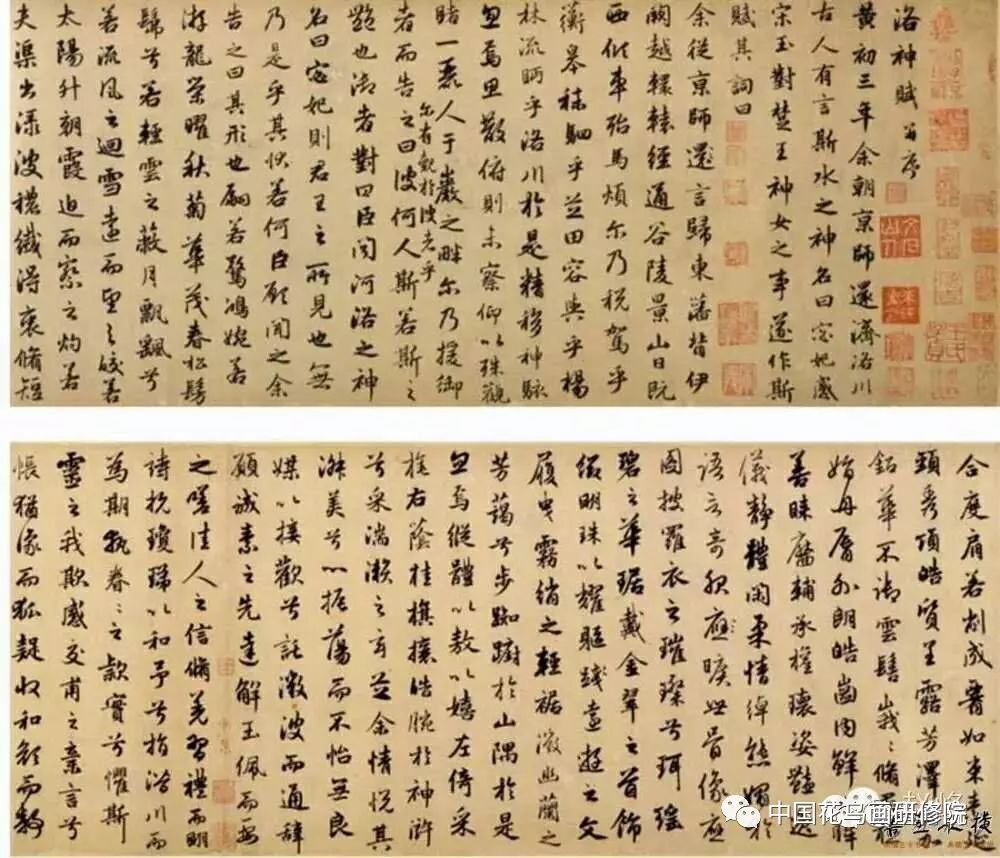 洛神賦 并序
黃初三年余朝京師還濟洛川
古人有言斯水之神名曰宓妃感
宋玉對楚王神女之事遂作斯
賦其詞曰
余從京師還言歸東藩背伊
闕越轘轅經通谷陵景山日既
西傾車殆馬煩尔乃稅駕乎
蘅皋秣駟乎芝田容與乎楊
林流眄乎洛川於是精移神駭
忽焉思散俯則未察仰以殊觀
睹一麗人于巖之畔尔乃援御
尔有覿於彼者乎
者而告之曰彼何人斯若斯之
豔也御者對曰臣聞河洛之神
名曰宓妃則君王之所見也無
乃是乎其狀若何臣願聞之余
告之曰其形也翩若驚鴻婉若
游龍榮曜秋菊華茂春松髣
髴兮若輕雲之蔽月飄颻兮
若流風之迴雪遠而望之皎若
太陽升朝霞迫而察之灼若
夫渠出淥波穠纖得衷脩短
合度肩若削成腰如束素延
頸秀項皓質呈露芳澤無加
鉛華不御雲髻峩〻脩眉
娟丹脣外朗皓齒內鮮明眸
善睞靨輔承權瓌姿豔逸
儀靜體閑柔情綽態媚於
語言奇服應曠世骨像應
圖披羅衣之璀璨兮珥瑤
碧之華琚戴金翠之首飾
綴明珠以耀軀踐遠遊之文
履曳霧綃之輕裾微幽蘭之
芳藹兮步踟躕於山隅於是
忽焉縱體以敖以嬉左倚采
旄右蔭桂旗攘皓腕於神滸
兮采湍瀨之玄芝余情悅其
淑美兮心振蕩而不怡無良
媒以接歡兮託微波而通辭
願誠素之先達解玉佩而要
之嗟佳人之信脩羌習禮而明
詩抗瓊珶以和予兮指潛川而
為期執眷〻之款實兮懼斯
靈之我欺感交甫之棄言兮
悵猶豫而狐疑收和顏而
中国花鸟画研修院